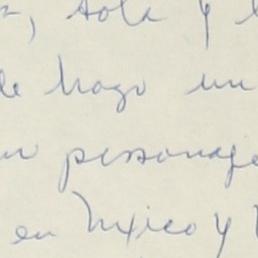 , sola y
le hago un
un personaje
en México y